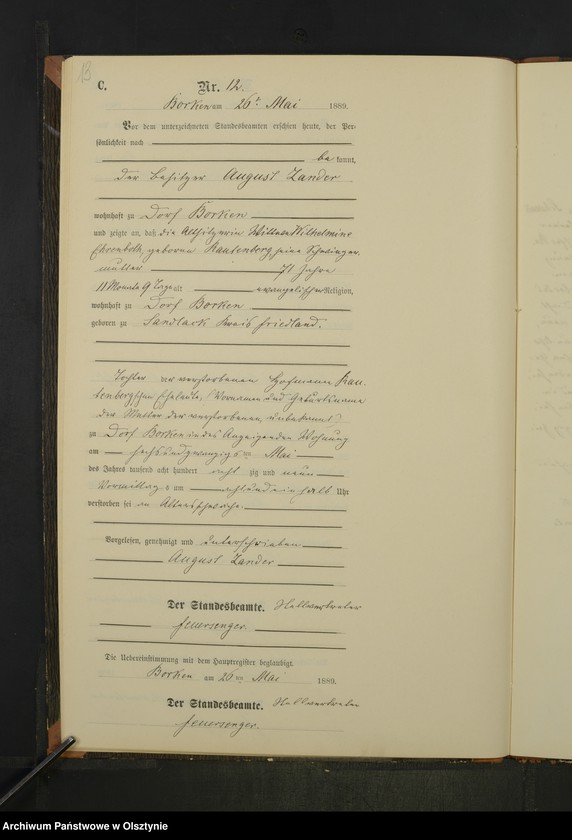 13
C.
Nr. 12.
Borken am 26ten Mai 1889.
Vor dem unterzeichneten Standesbeamten erschien heute, der Per-
sönlichkeit nach
be kannt,
der Besitzer August Zander
wohnhaft zu Dorf Borken
und zeigte an, daß die Altsitzerin Wittwe Wilhelmine
geborene Rautenberg, seine Schwieger-
mutter 71 Jahre
11 Monate 9 Tage alt evangelischer Religion,
wohnhaft zu Dorf Borken
geboren zu Sandlack Kreis Friedland.
Tochter der verstorbenen Hofmann Rau-
tenbergschen Eheleute, (Vornamen und Geburtsname
der Mutter der verstorbenen, unbekannt)
zu Dorf Borken in des Anzeigenden Wohnung
am sechsundzwanzigsten Mai
des Jahres tausend acht hundert acht zig und neun
Vormittags um acht und ein halb Uhr
verstorben sei an Altersschwäche.
Vorgelesen, genehmigt und unterschrieben
August Zander
Der Standesbeamte. Stellvertreter
Feuersenger.
Die Uebereinstimmung mit dem Hauptregister beglaubigt.
Borken am 26ten Mai 1889.
Der Standesbeamte. Stellvertreter
Feuersenger.
Archiwum Państwowe w Olsztynie